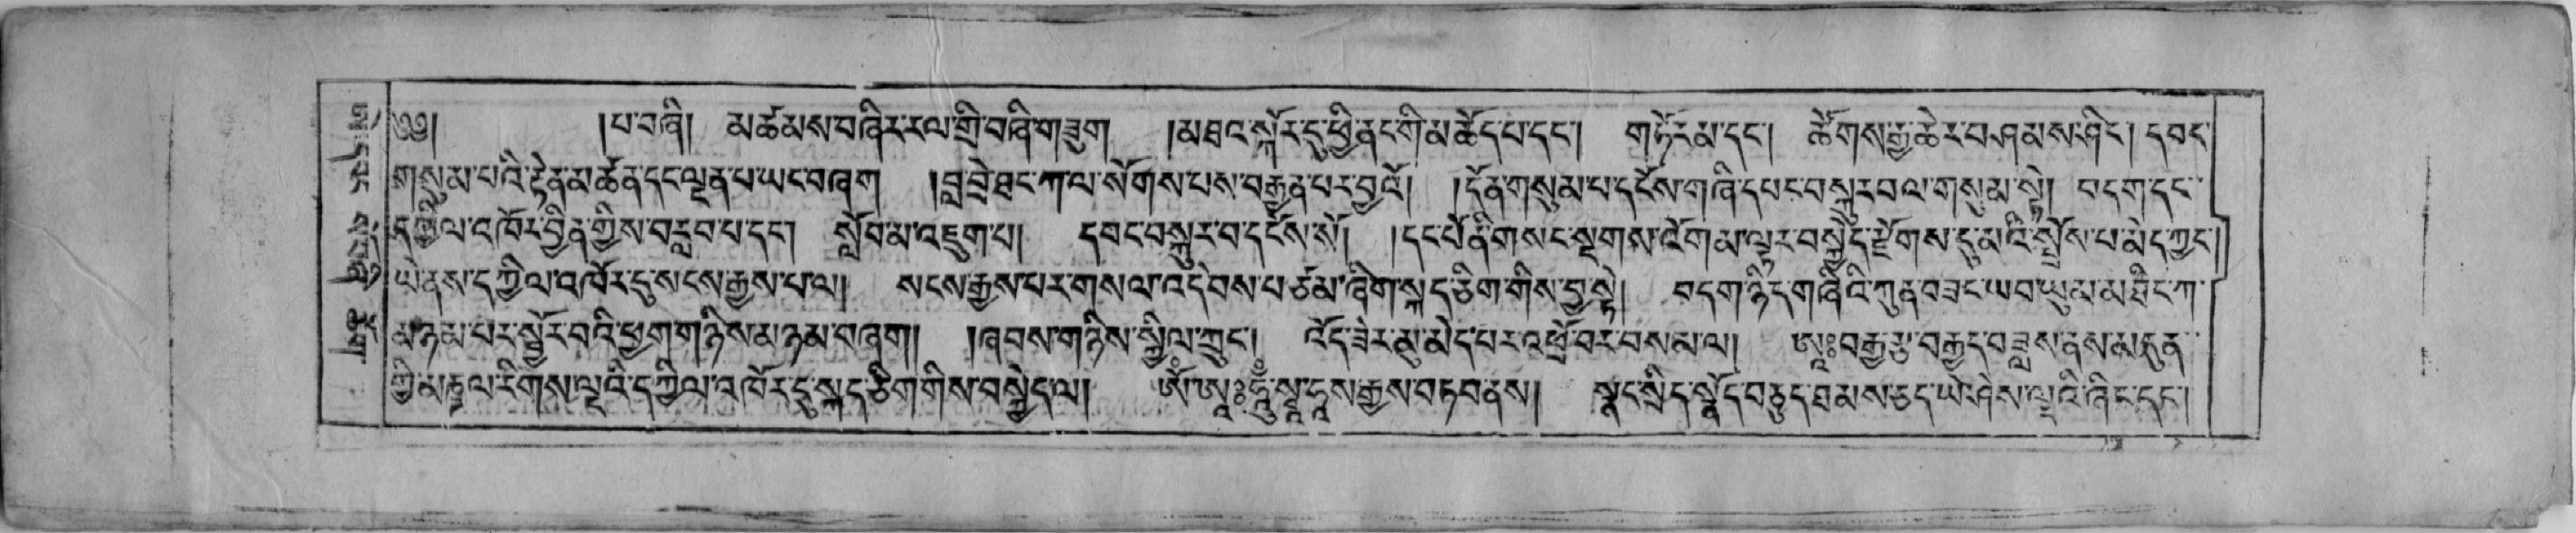 ༄༅། །པ་བཞི། མཚམས་བཞིར་རལ་གྲི་བཞི་གཟུག །མཐའ་སྐོར་དུ་ཕྱི་ནང་གི་མཆོད་པ་དང༌། གཏོརམ་དང༌། ཚོགས་རྒྱ་ཆེར་བཤམས་ཤིང༌། དབང་
གསུམ་པའི་རྟེན་མཚོན་དང་ལྡན་པ་ཡང་བཞག །བླ་བྲེ་ཐང་ཀ་ལ་སོགས་པས་བརྒྱན་པར་བྱའོ། །དོན་གསུམ་པ་དངོས་གཞི་དབང་བསྐུར་བལ་གསུམ་སྟེ། བདག་དང་
དཀྱིལ་འཁོར་བྱིན་གྱིས་བརླབ་པ་དང༌། སློབ་མ་འཇུག་པ། དབང་བསྐུར་བ་དངོས་སོ། །དང་པོ་ནི་གསང་སྔགས་འོགམ་ལྟར་བསྐྱེད་རྫོགས་དུམའི་སྤྲོས་པ་མེད་ཀྱང༌།
ཡེ་ནས་དཀྱིལ་འཁོར་དུ་སངས་རྒྱས་པ་ལ། སངས་རྒྱས་པར་གསལ་འདེབས་པ་ཙམ་ཞིག་སྐད་ཅིག་གིས་བྱ་སྟེ། བདག་ཉིད་གཞིའི་ཀུན་བཟང་ཡབ་ཡུམ་མཐིང་ཀ་
མཉམ་པར་སྦྱོར་བའི་ཕྱག་གཉིས་མཉམ་བཞག །ཞབས་གཉིས་སྐྱིལ་ཀྲུང༌། འོད་ཟེར་མུ་མེད་པར་འཕྲོ་བར་བསམ་ལ། ཨཱཿབརྒྱ་རྩ་བརྒྱད་བཟླས་ནས་མདུན་
ཀྱི་མཎྜལ་རིགས་ལྔའི་དཀྱིལ་འཁོར་དུ་སྐད་ཅིག་གིས་བསྐྱེད་ལ། ཨོཾ་ཨཱཿཧཱུྃ་སྭཱ་ཧཱས་རྒྱས་བཏབ་ནས། སྣང་སྲིད་སྣོད་བཅུད་ཐམས་ཅད་ཡེ་ཤེས་ལྔའི་ཞིང་དང༌།